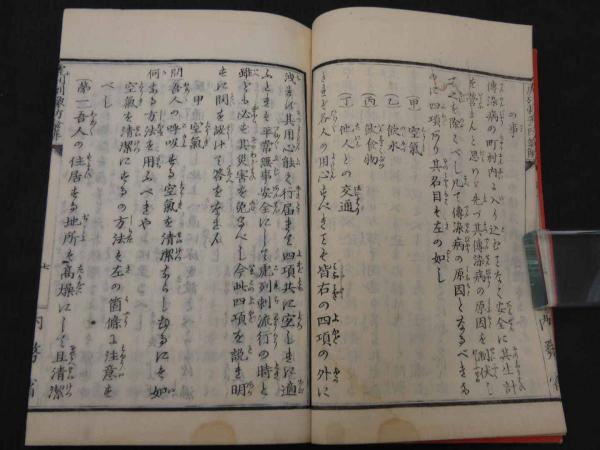 の事
傳染病の町村内に入り込むことなく安全に其生計
を營まんと思はゞ先づ其傳染病の原因を
を除くべし凡て傳染病の原因となるべきも
のに四項あり其名目を左の如し
(甲) 空氣
(乙) 飲水
(丙) 飲食物
(丁) 他人との交通
されば各人の用心すべきことも皆右の四項の外に
洩れば其用心能く行届き四項共に宜しきに適
ふときは平常無事安全にして虎列剌流行の時と
雖ども必を其災害を免るべし今此四項を說き明
すに問を設けて答をなさん
甲 空氣
(問)吾人の呼吸する空氣を清潔ならしむるには如
何なる方法を用ふべきや
空氣を清潔にするの方法は左の箇條に注意を
べし
(第一)吾人の住居する地所を高燥にして且清潔
七
內務省